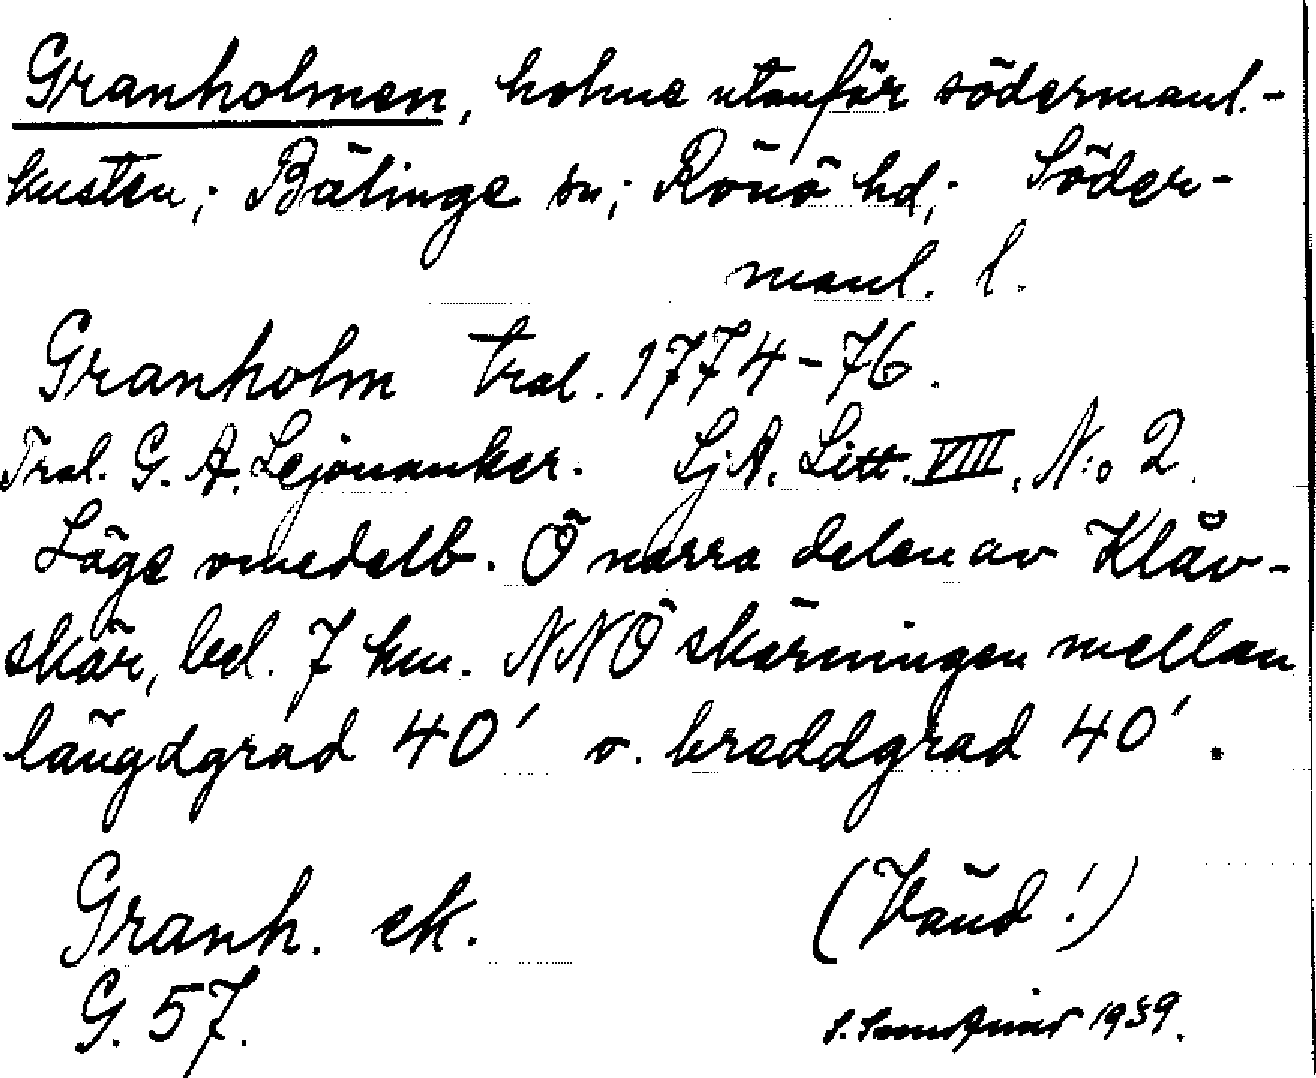 Granholmen, holme utanför södermanl.-
kusten; Bälinge sn; Rönö hd; Söder-
manl. l.
Granholm tral. 1774-76.
Tral. G. A. Lejonanker. LjA. Litt. VIII, N:o 2.
Läge omedelb. Ö norra delen av Klåv-
skär, bel. 7 km. NNÖ skärningen mellan
längdgrad 40' o. breddgrad 40'.
Granh. ek. (Vänd!)
G. 57. 1939.